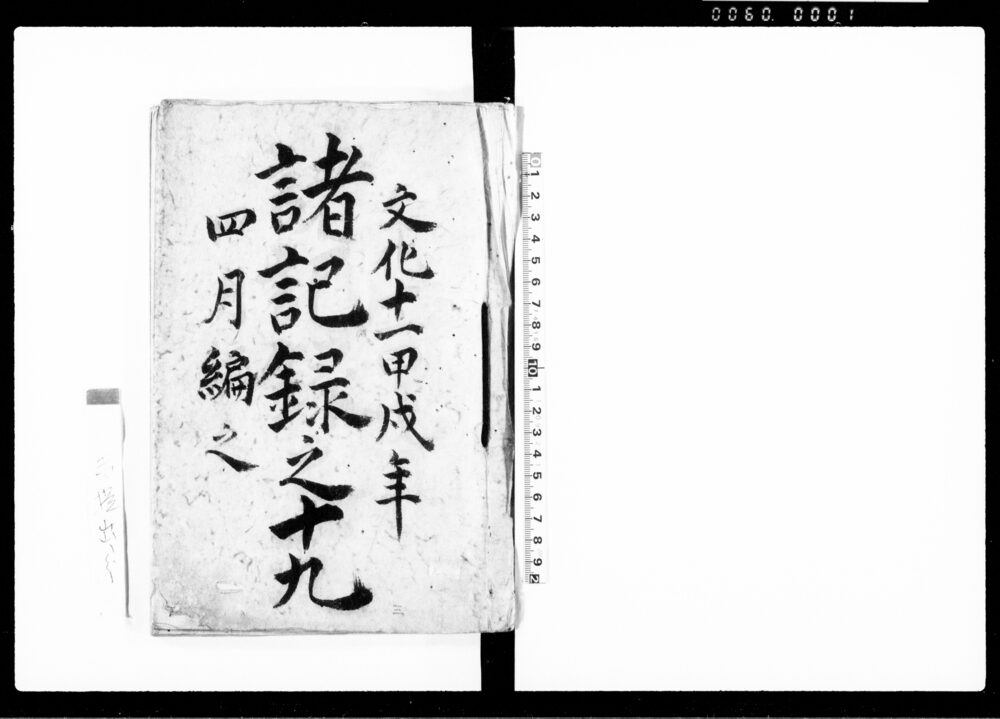 0060. 0001
文化十一甲戌年
諸記録之十九
四月編之
0 1 2 3 4 5 6 7 8 9 10 1 2 3 4 5 6 7 8 9 2